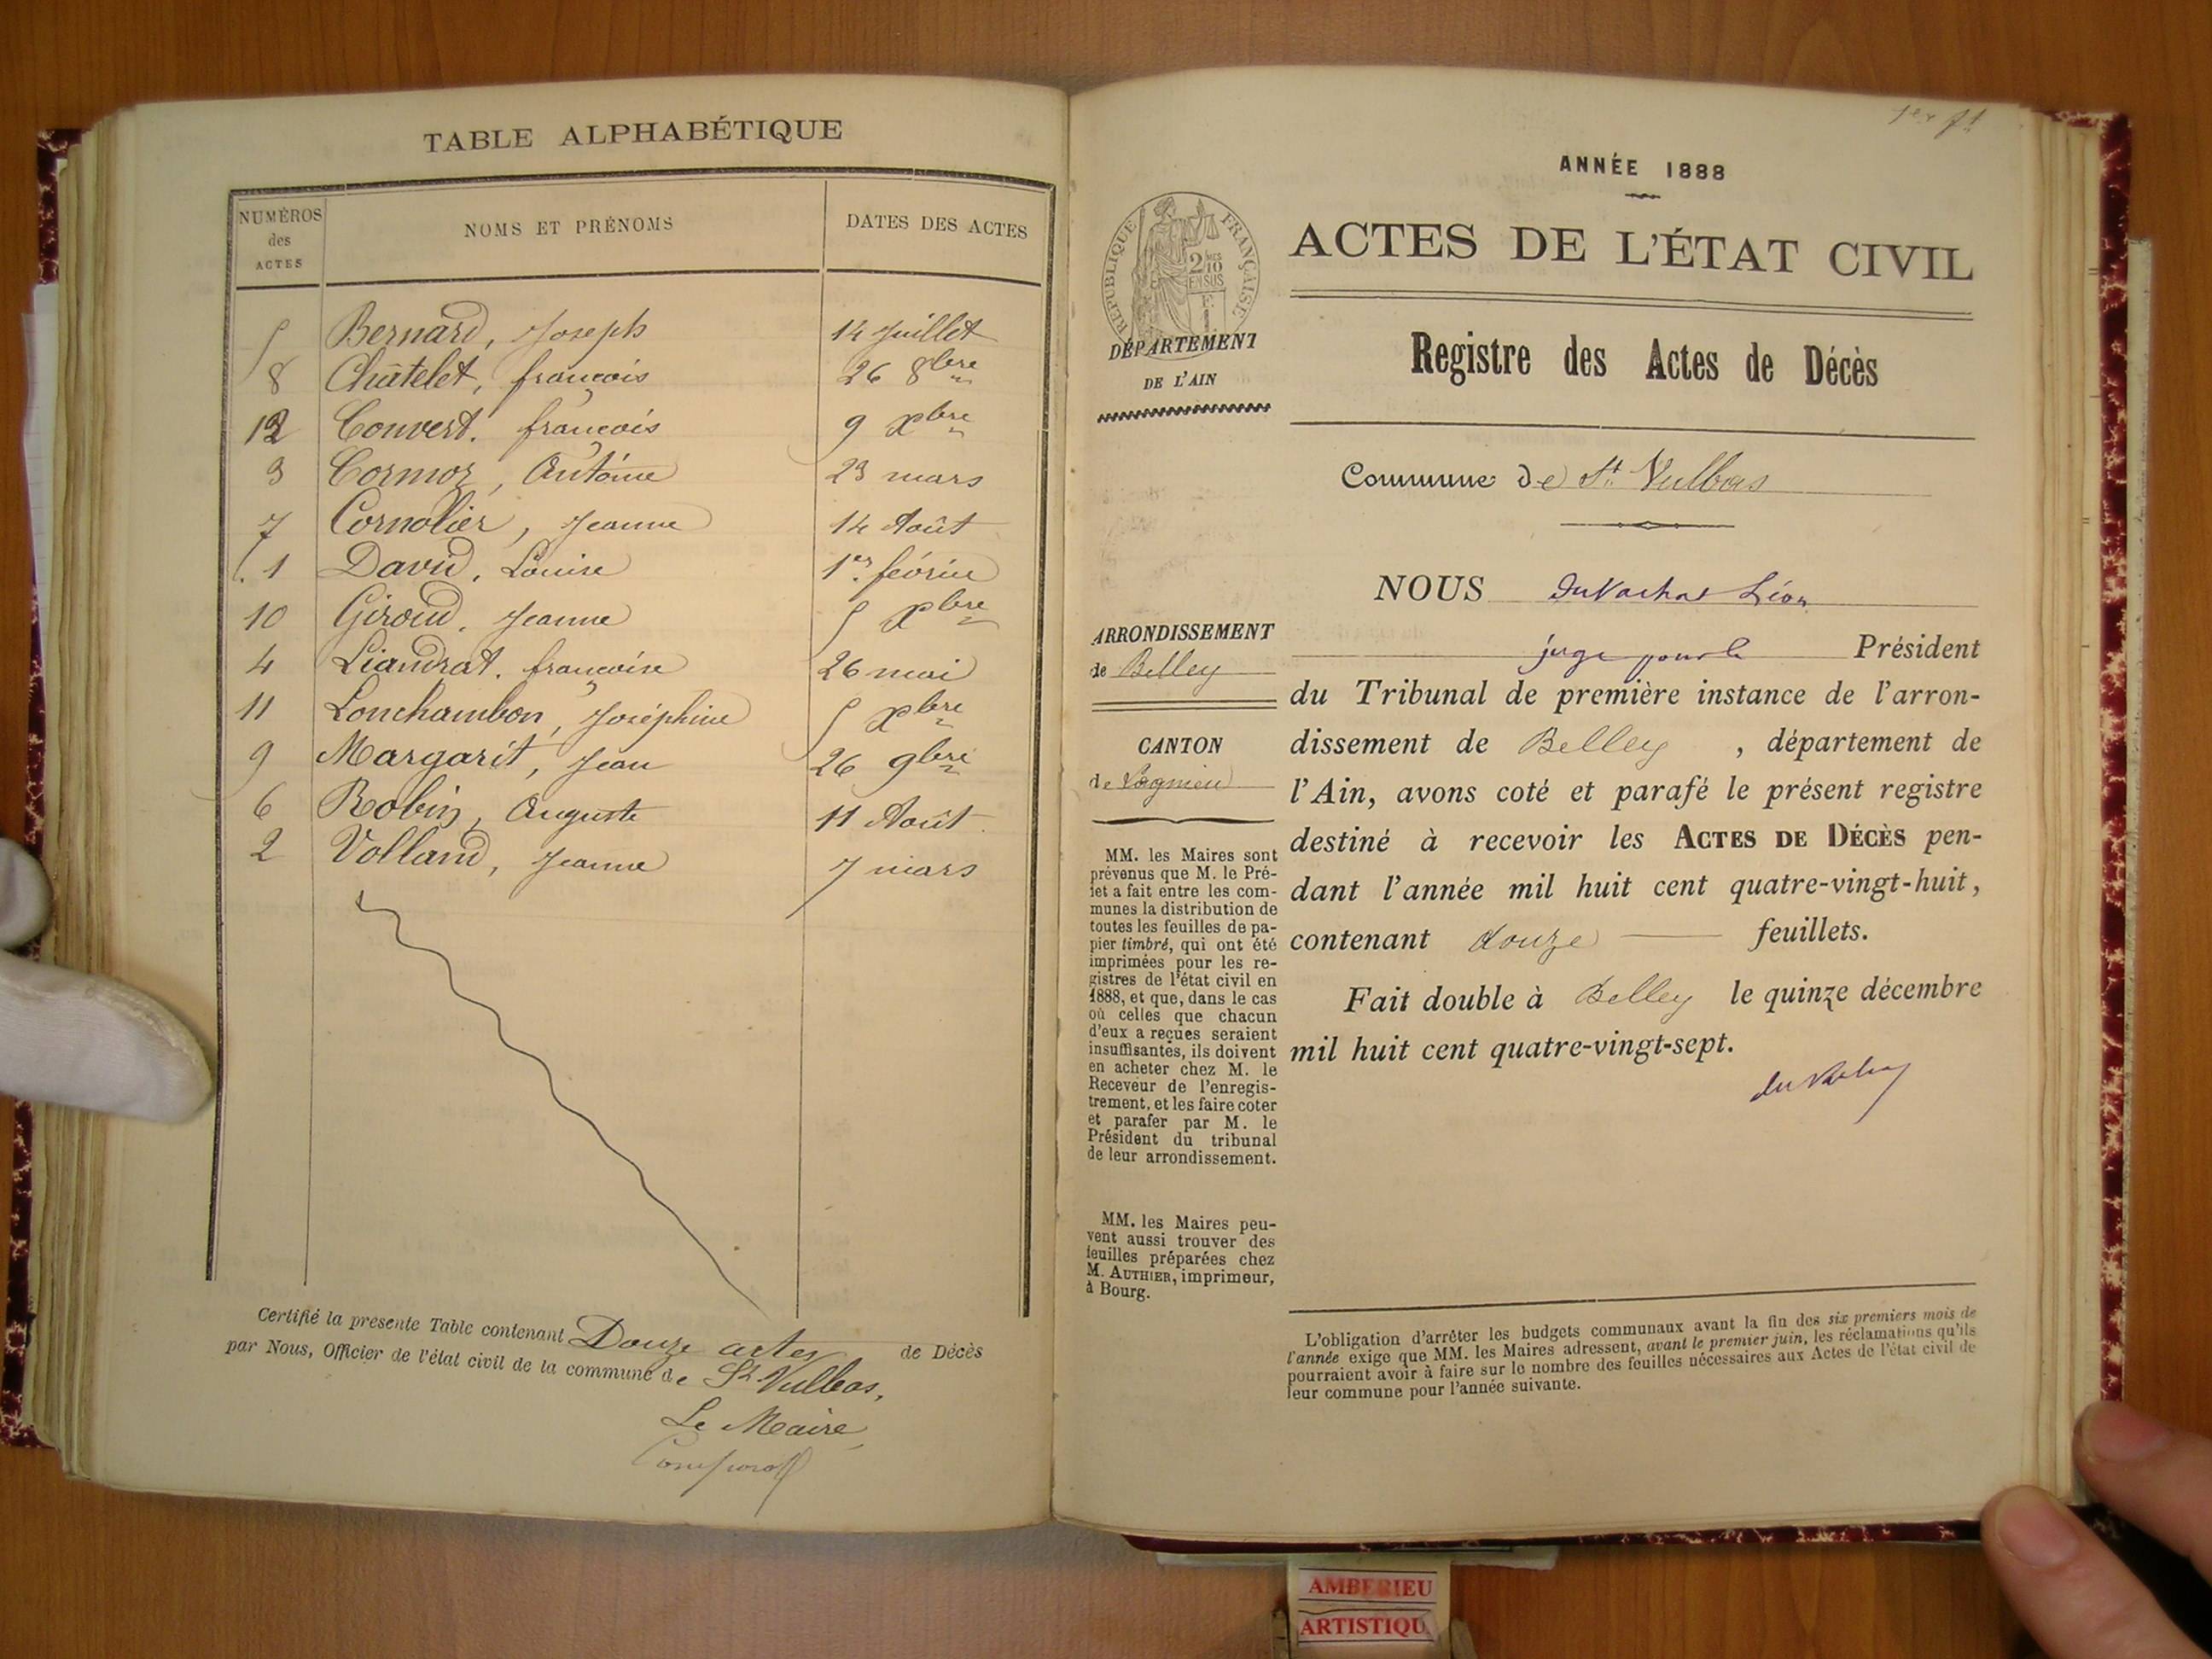 TABLE ALPHABÉTIQUE
NUMÉROS des ACTES
NOMS ET PRÉNOMS
DATES DES ACTES
5 Bernard, Joseph 14 Juillet
8 Châtelet, françois 26 8bre
12 Convert. françois 9 Xbre
3 Cormoz, Antoine 23 mars
7 Cornolier, Jeanne 14 Août
1 David, Louise 1er février
10 Giroud, Jeanne 5 Xbre
4 Liandrat. françoise 26 mai
11 Lonchambon, Joséphine 5 Xbre
9 Margarit, Jean 26 9bre
6 Robin, Auguste 11 Août
2 Volland, Jeanne 7 mars
Certifié la presente Table contenant Douze actes de Décès
par Nous, Officier de l'état civil de la commune de St Vulbas,
Le Maire,
1er ft
ANNÉE 1888
ACTES DE L'ÉTAT CIVIL
RÉPUBLIQUE FRANÇAISE
2 MES
10
EN SUS
F.
1
DÉPARTEMENT
DE L'AIN
Registre des Actes de Décès
Commune de St Vulbas
ARRONDISSEMENT
de Belley
CANTON
de Lagnieu
MM. les Maires sont
prévenus que M. le Pré-
fet a fait entre les com-
munes la distribution de
toutes les feuilles de pa-
pier timbré, qui ont été
imprimées pour les re-
gistres de l'état civil en
1888, et que, dans le cas
où celles que chacun
d'eux a reçues seraient
insuffisantes, ils doivent
en acheter chez M. le
Receveur de l'enregis-
trement, et les faire coter
et parafer par M. le
Président du tribunal
de leur arrondissement.
MM. les Maires peu-
vent aussi trouver des
feuilles préparées chez
M. AUTHIER, imprimeur,
à Bourg.
NOUS duVachat Léon
juge pour le Président
du Tribunal de première instance de l'arron-
dissement de Belley , département de
l'Ain, avons coté et parafé le présent registre
destiné à recevoir les ACTES DE DÉCÈS pen-
dant l'année mil huit cent quatre-vingt-huit,
contenant douze feuillets.
Fait double à Belley le quinze décembre
mil huit cent quatre-vingt-sept.
L'obligation d'arrêter les budgets communaux avant la fin des six premiers mois de
l'année exige que MM. les Maires adressent, avant le premier juin, les réclamations qu'ils
pourraient avoir à faire sur le nombre des feuilles nécessaires aux Actes de l'état civil de
leur commune pour l'année suivante.
AMBERIEU
ARTISTIQU